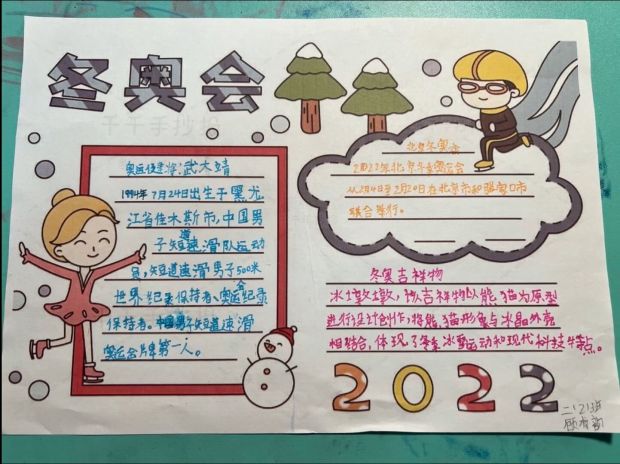 冬奥会
千千手抄报
奥运健将:武大靖
1994年7月24日出生于黑龙
江省佳木斯市,中国男
子短道速滑队运动
员,短道速滑男子500米
世界纪录保持者、奥运会纪录
保持者。中国男子短道速滑
奥运会金牌第一人。
北京冬奥会
2022年北京冬季奥运会
从2月4日至2月20日在北京市和张家口市
联合举行。
冬奥吉祥物
冰墩墩,该吉祥物以熊猫为原型
进行设计创作,将熊猫形象与冰晶外壳
相结合,体现了冬季冰雪运动和现代科技特点。
2022